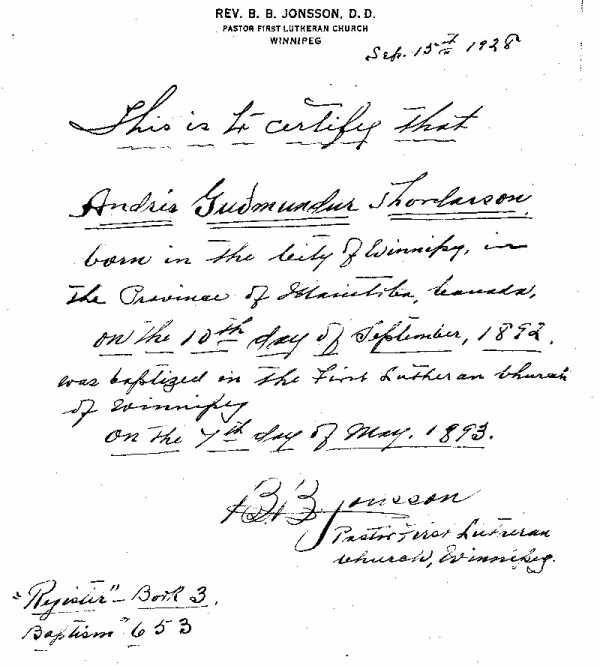 REV. B. B. JONSSON, D. D.
PASTOR FIRST LUTHERAN CHURCH
WINNIPEG
Sep. 15th 1928
This is to certify that
Andrés Guðmundur Thordarson
born in the City of Winnipeg, in
the Province of Manitoba, Canada,
on the 10th day of September, 1892.
was baptized in the First Lutheran Church
of Winnipeg
on the 7th day of May. 1893.
B B Jonsson
Pastor First Lutheran
Church, Winnipeg.
"Register" - Book 3.
Baptism" 653